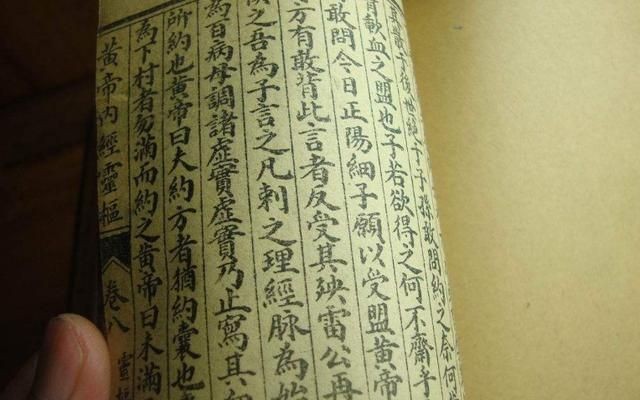 于後世絕于子孫敢問約之奈何
歃血之盟也子若欲得之何不齋乎
敢問今日正陽細子願以受盟黃帝
方有敢背此言者反受其殃雷公再
之吾為子言之凡刺之理經脈為始
為百病母調諸虛實虛實乃止寫其
所約也黃帝曰夫約方者猶約囊也
為下村者勿滿而約之黃帝曰未滿
黃帝內經靈樞 卷八 靈樞